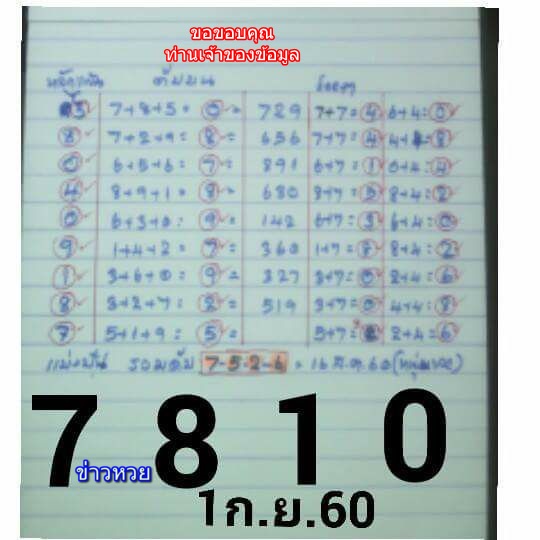 ขอขอบคุณ
ท่านเจ้าของข้อมูล
3 7+8+5= 0 = 729 7+7= 4 6+4= 0
8 7+2+9= 8 = 656 7+7= 4 8
0 6+5+6= 7 = 891 6+7= 1 0+4= 4
4 8+9+1= 8 = 680 8+7= 5 8+4= 2
0 6+3+0= 9 = 142 6+7= 3 6+4= 0
9 1+4+2= 7 = 360 1+7= 8 8+4= 2
1 3+6+0= 9 = 327 3+7= 0 2+4= 6
8 3+2+7= 2 = 519 3+7= 0 4+4= 8
7 5+1+9= 5 = 5+7= 2 2+4= 6
รวมดับ 7-5-2-6 = 16 ส.ค.60
7 8 1 0
ข่าวหวย
1ก.ย.60